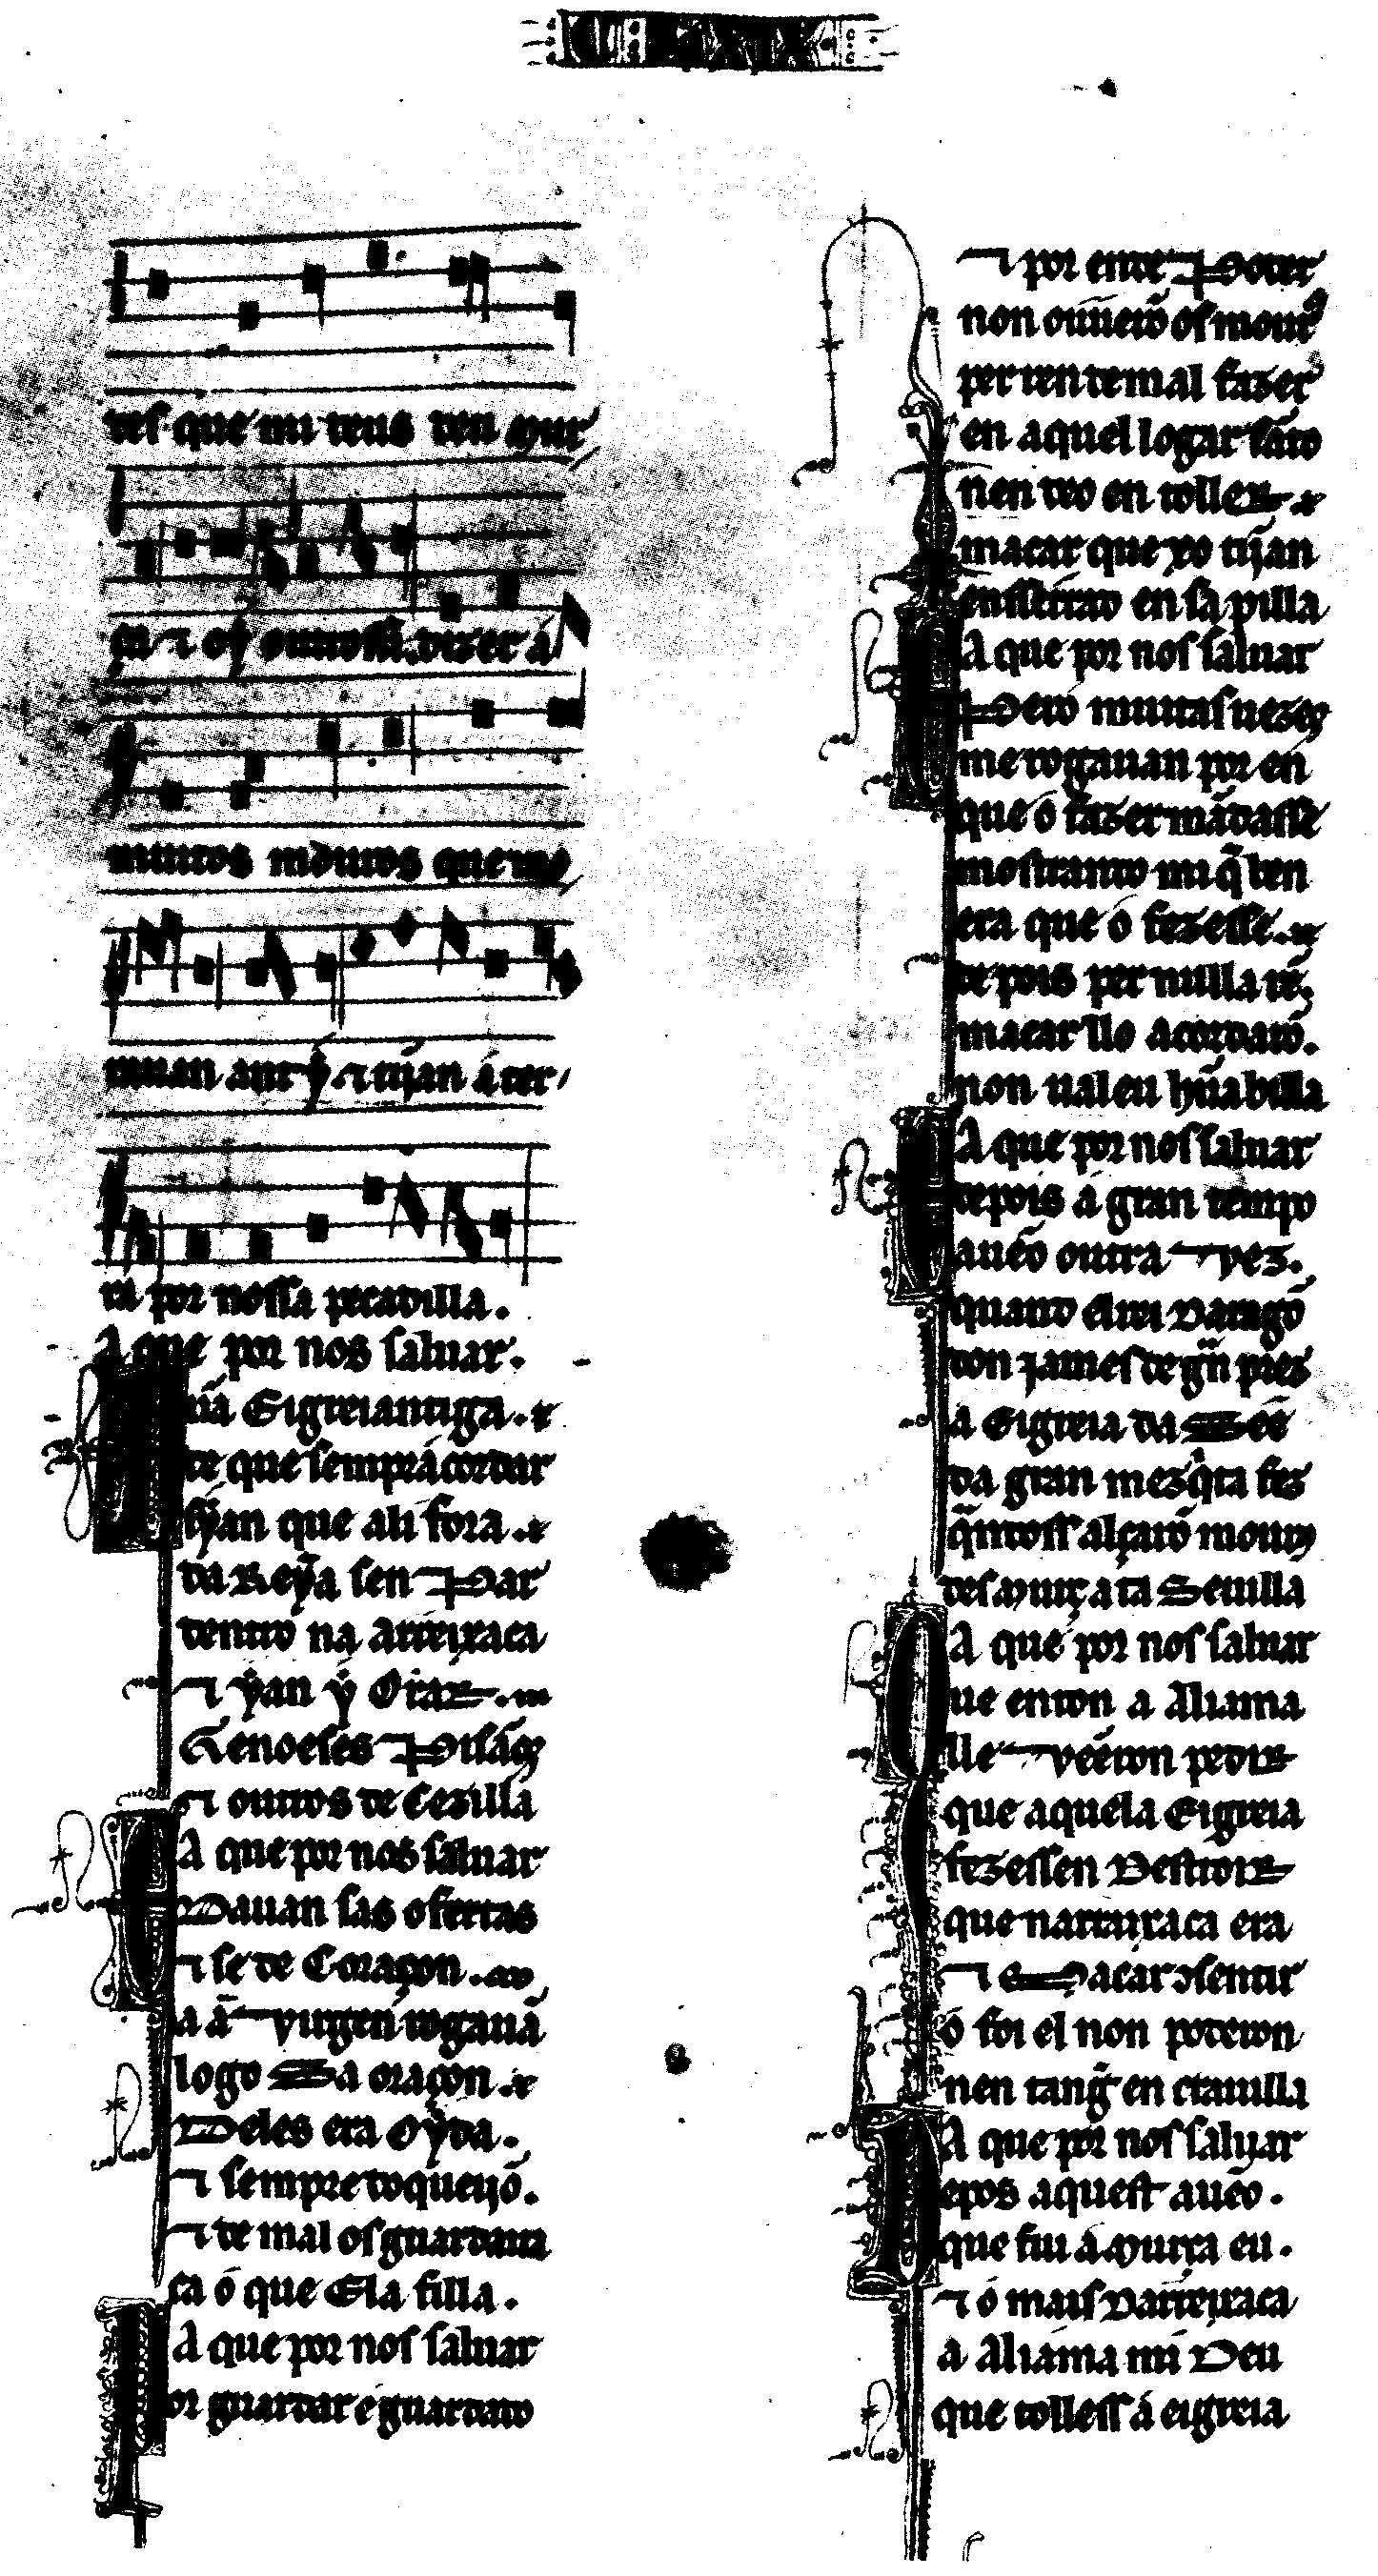 tes que mi deus deu mur
ça ⁊ oy outrossi dizer a
muitos mouros que mo
rauan ant y ⁊ tijan a ter
ra por nossa pecadilla.
A que por nos saluar.
ũa Eigreiantiga.
de que sempracordar
sijan que ali fora.
da Reỹa sen Par
dentro na arreixaca
⁊ yan y Orar.
Genoeses Pisãos
⁊ outros de Cezilla
A que por nos saluar
Dauan sas ofertas
⁊ se de Coraçon.
aa uirgen rogauã
logo Sa oraçon.
Deles era Oyda.
⁊ sempre doqueijõ.
⁊ de mal os guardaua
ca ó que Ela filla.
A que por nos saluar
or guardar é guardado
⁊ por ende Poder
non ouuerõ os mour
per ren de mal fazer
en aquel logar sãto
nen dro en toller
macar que xo tijan
enserrado en sa pilla
A que por nos saluar
Pero muitas uezes
me rogauan por en
que o fazer mãdasse
mostrando mi q̃ ben
era que o fezesse.
depois per nulla rẽ.
macar llo acordarõ.
non ualeu hũa billa
A que por nos saluar
depois á gran tempo
auẽo outra uez.
quando el rei Daragõ
don James de grã prez
a Eigreia da See
da gran mezq̃ta fez
q̃ndoss alçarõ mour
des Murça ta Seuilla
A que por nos saluar
Que enton a Aliama
lle uẽeron pedir
que aquela Eigreia
fezessen Destroir
que narreixaca era
⁊ Macar ↄsentir
o foi el non poderon
nen tanger en crauilla
A que por nos saluar
Depos aquest auẽo.
que fui a Murça eu.
⁊ o mais Darreixaca
a Aliama mi Deu
que tolless á eigreia